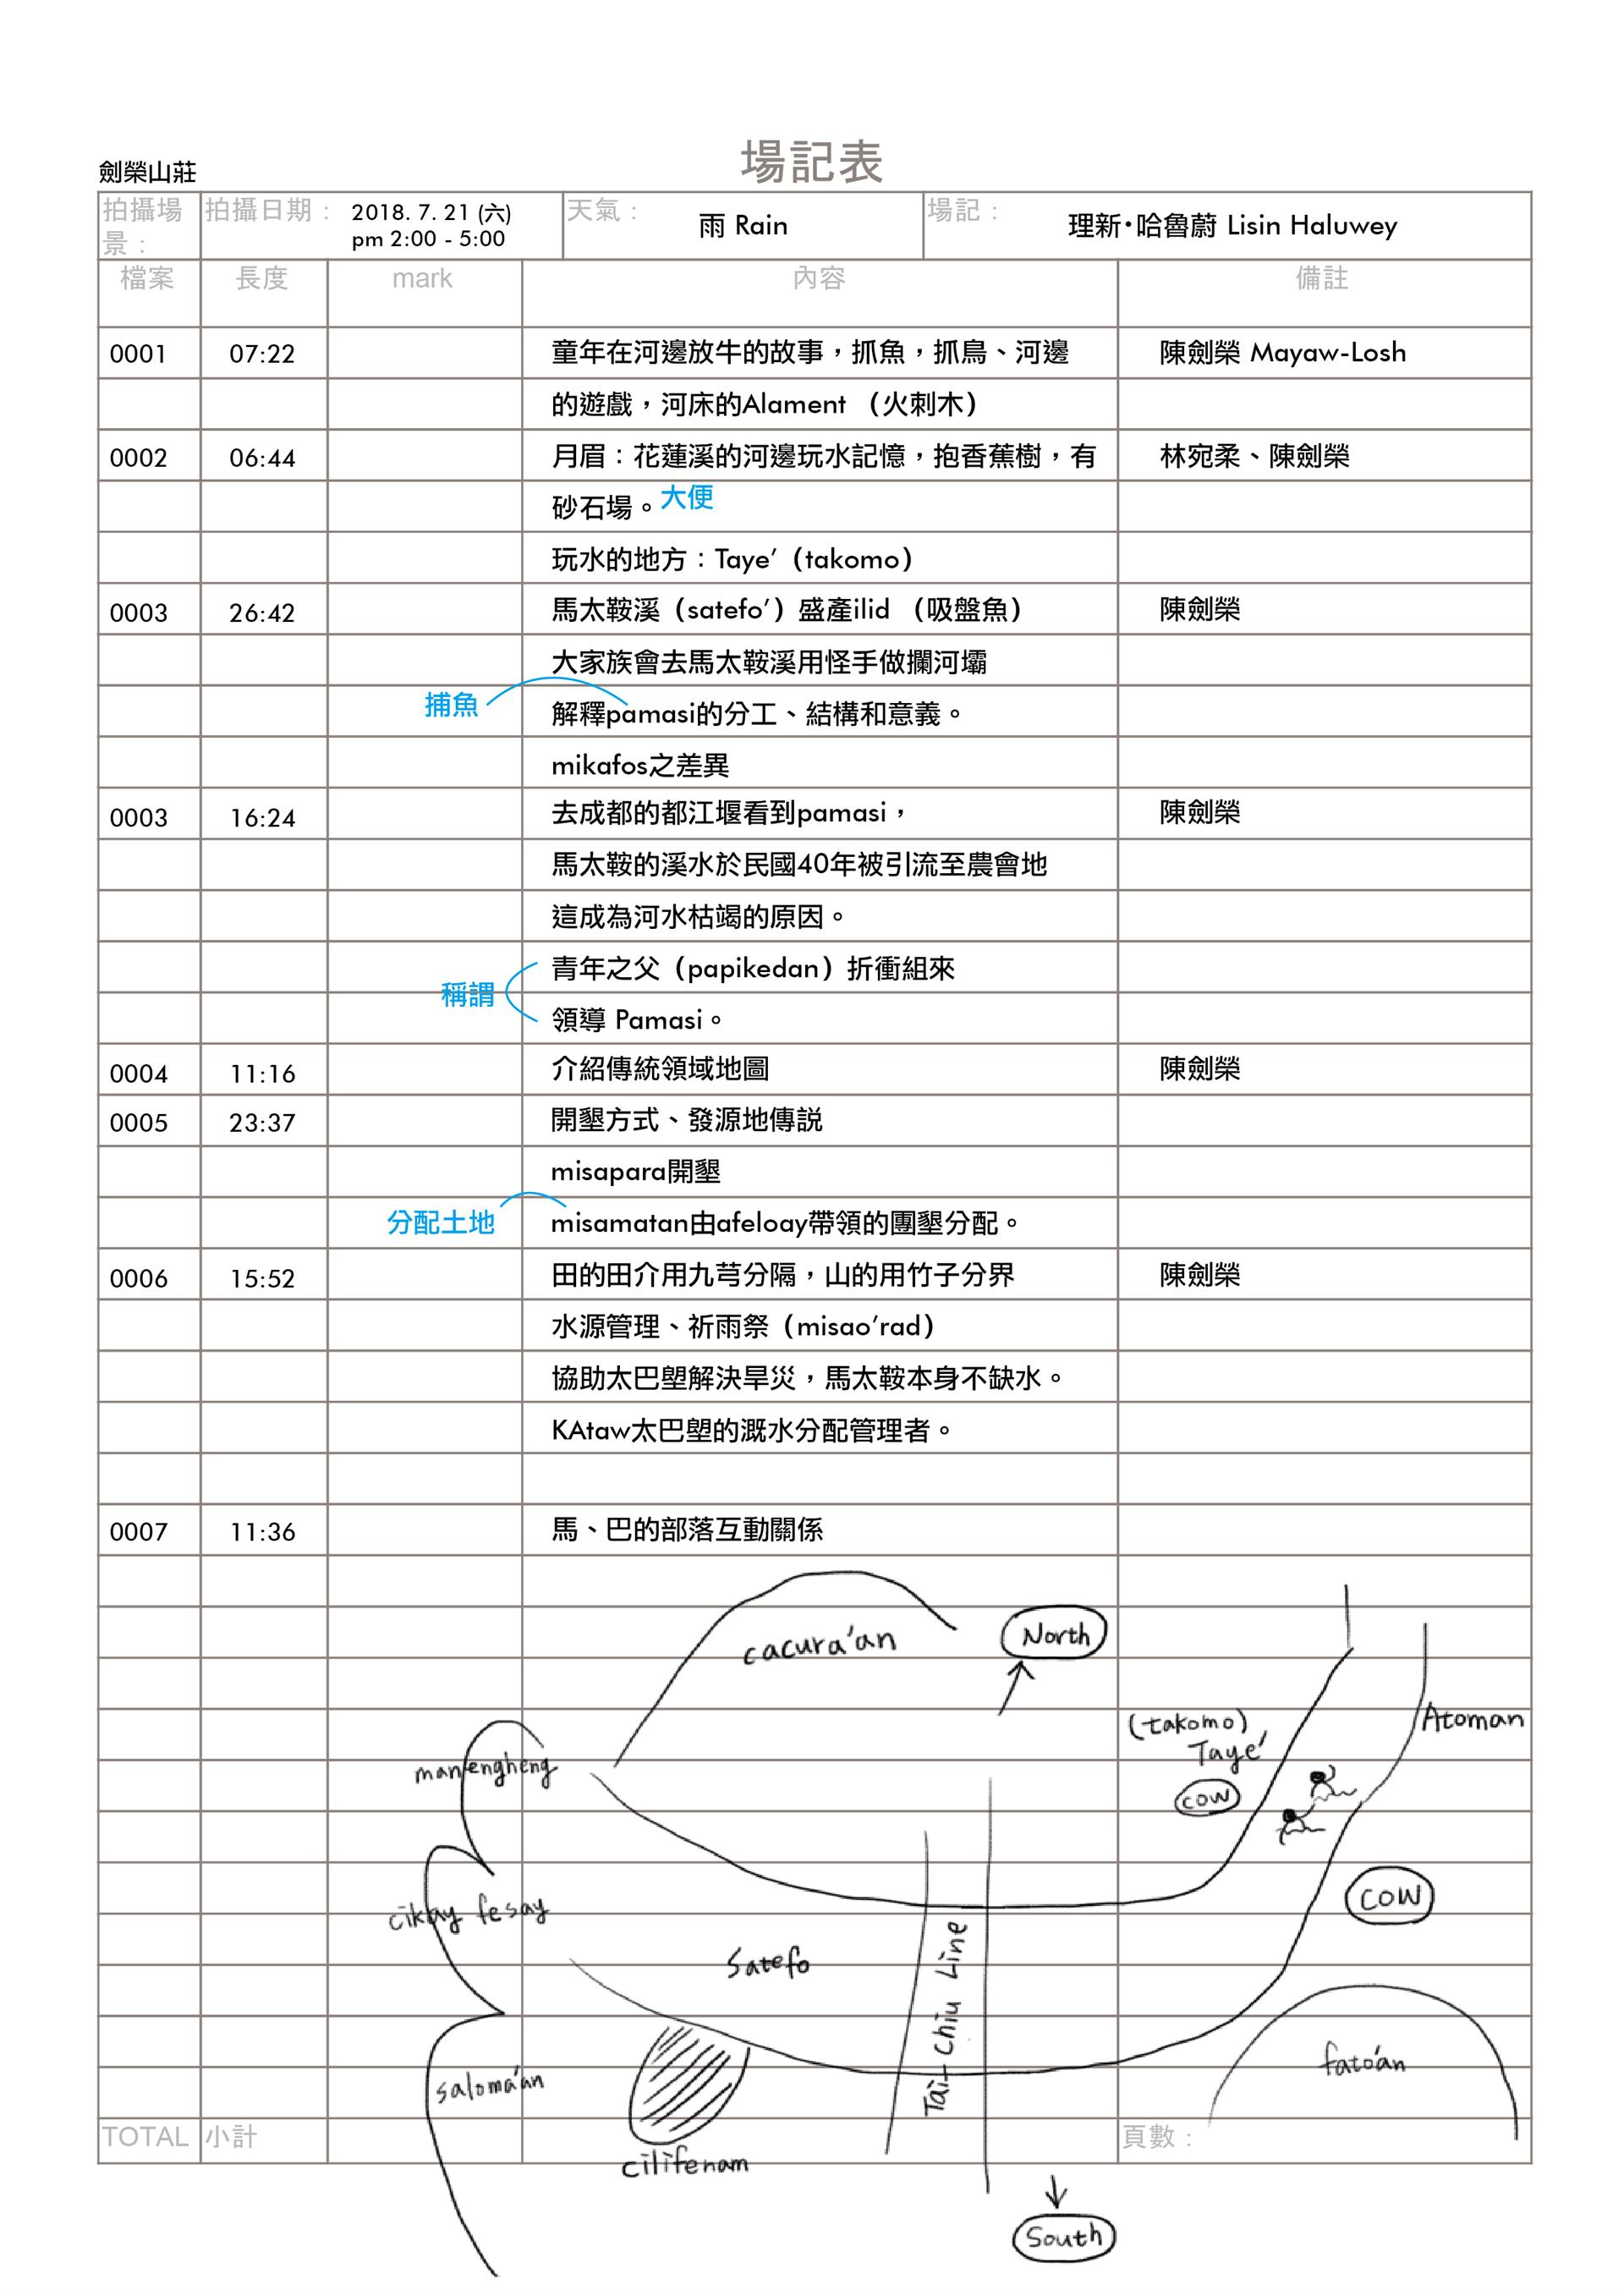 場記表
劍榮山莊
拍攝場景： 拍攝日期： 2018. 7. 21 (六) pm 2:00 - 5:00 天氣： 雨 Rain 場記： 理新·哈魯蔚 Lisin Haluwey
檔案 長度 mark 內容 備註
0001 07:22 童年在河邊放牛的故事，抓魚，抓鳥、河邊 陳劍榮 Mayaw-Losh
的遊戲，河床的Alament （火刺木）
0002 06:44 月眉：花蓮溪的河邊玩水記憶，抱香蕉樹，有 林宛柔、陳劍榮
砂石場。大便
玩水的地方：Taye’（takomo）
0003 26:42 馬太鞍溪（satefo’）盛產ilid （吸盤魚） 陳劍榮
大家族會去馬太鞍溪用怪手做攔河壩
捕魚 解釋pamasi的分工、結構和意義。
mikafos之差異
0003 16:24 去成都的都江堰看到pamasi， 陳劍榮
馬太鞍的溪水於民國40年被引流至農會地
這成為河水枯竭的原因。
青年之父（papikedan）折衝組來
稱謂
領導 Pamasi。
0004 11:16 介紹傳統領域地圖 陳劍榮
0005 23:37 開墾方式、發源地傳說
misapara開墾
分配土地 misamatan由afeloay帶領的團墾分配。
0006 15:52 田的田介用九芎分隔，山的用竹子分界 陳劍榮
水源管理、祈雨祭（misao’rad）
協助太巴塱解決旱災，馬太鞍本身不缺水。
KAtaw太巴塱的溉水分配管理者。
0007 11:36 馬、巴的部落互動關係
cacura'an
North
(takomo)
Taye'
Atoman
manengheng
cow
cow
cikay fesay
Satefo
Tai-Chiu Line
fato'an
saloma'an
TOTAL 小計 頁數：
cilifenam
South